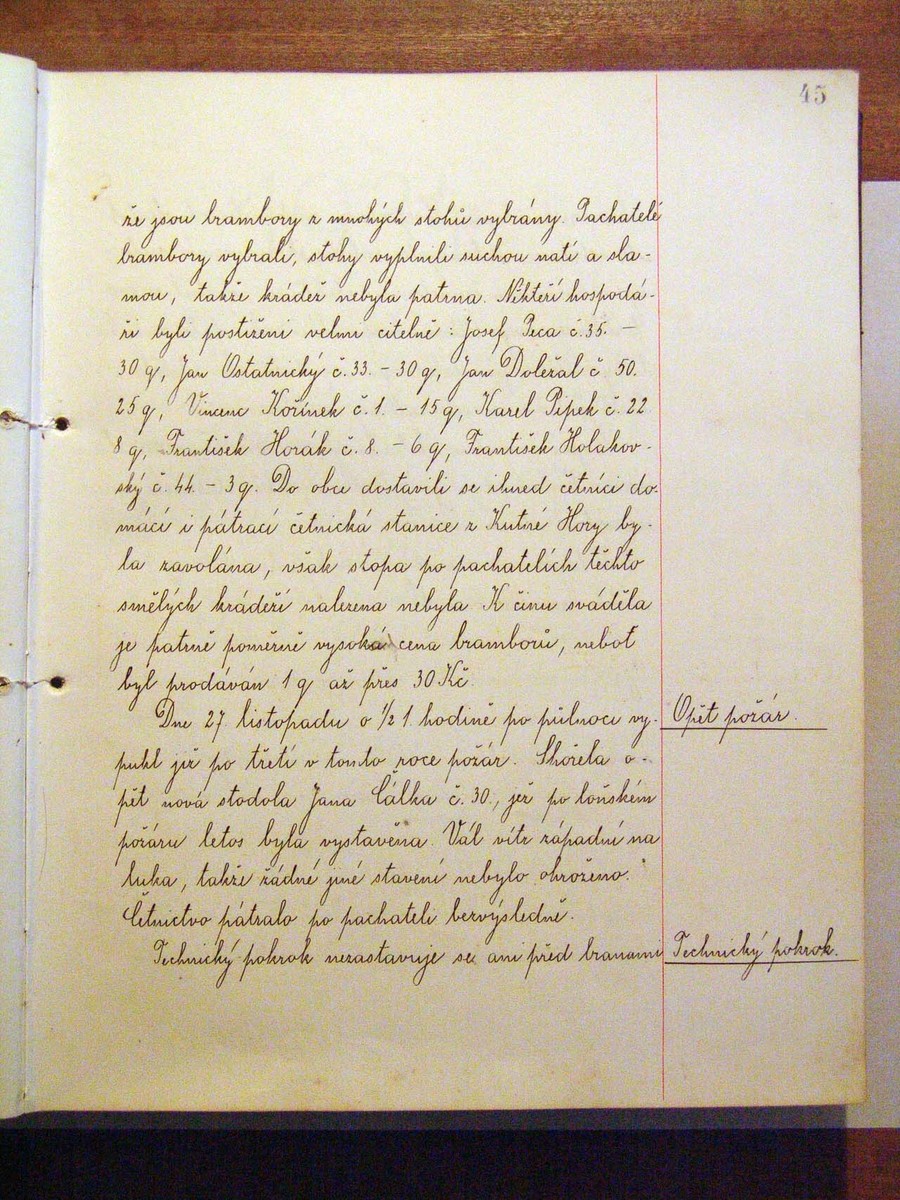 45
že jsou brambory z mnohých stohů vybrány. Pachatelé
brambory vybrali, stohy vyplnili suchou natí a sla-
mou, takže krádež nebyla patrna. Někteří hospodá-
ři byli postiženi velmi citelně: Josef Peca č. 35. –
30 q, Jan Ostatnický č. 33. – 30 q, Jan Doležal č 50.
25 q, Vincenc Kořínek č. 1. – 15 q, Karel Pipek č. 22
8 q, František Horák č. 8. – 6 q, František Holakov-
ský č. 44. – 3 q. Do obce dostavili se ihned četníci do-
mácí i pátrací četnická stanice z Kutné Hory by-
la zavolána, však stopa po pachatelích těchto
smělých krádeží nalezena nebyla. K činu sváděla
je patrně poměrně vysoká cena bramborů, neboť
byl prodáván 1 q až přes 30 Kč.
Dne 27. listopadu o ½ 1. hodině po půlnoci vy-
Opět požár.
pukl již po třetí v tomto roce požár. Shořela o-
pět nová stodola Jana Cálka č. 30., jež po loňském
požáru letos byla vystavěna. Vál vítr západní na
luka, takže žádné jiné stavení nebylo ohroženo.
Četnictvo pátralo po pachateli bezvýsledně.
Technický pokrok nezastavuje se ani před branami
Technický pokrok.